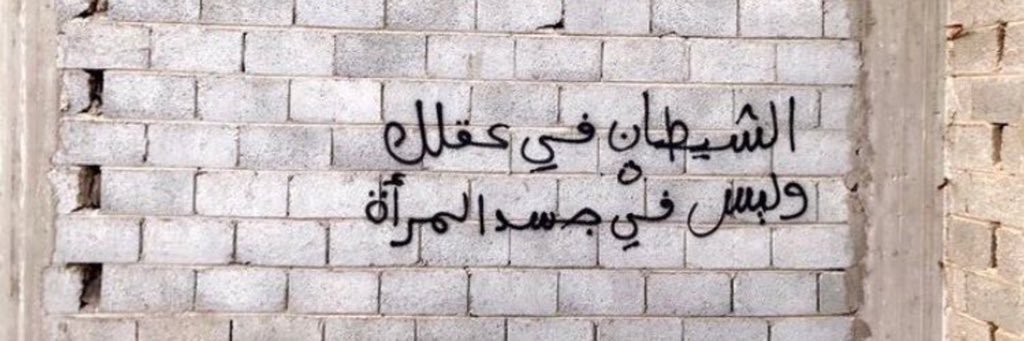 الشيطان في عقلك
وليس في جسد المرأة